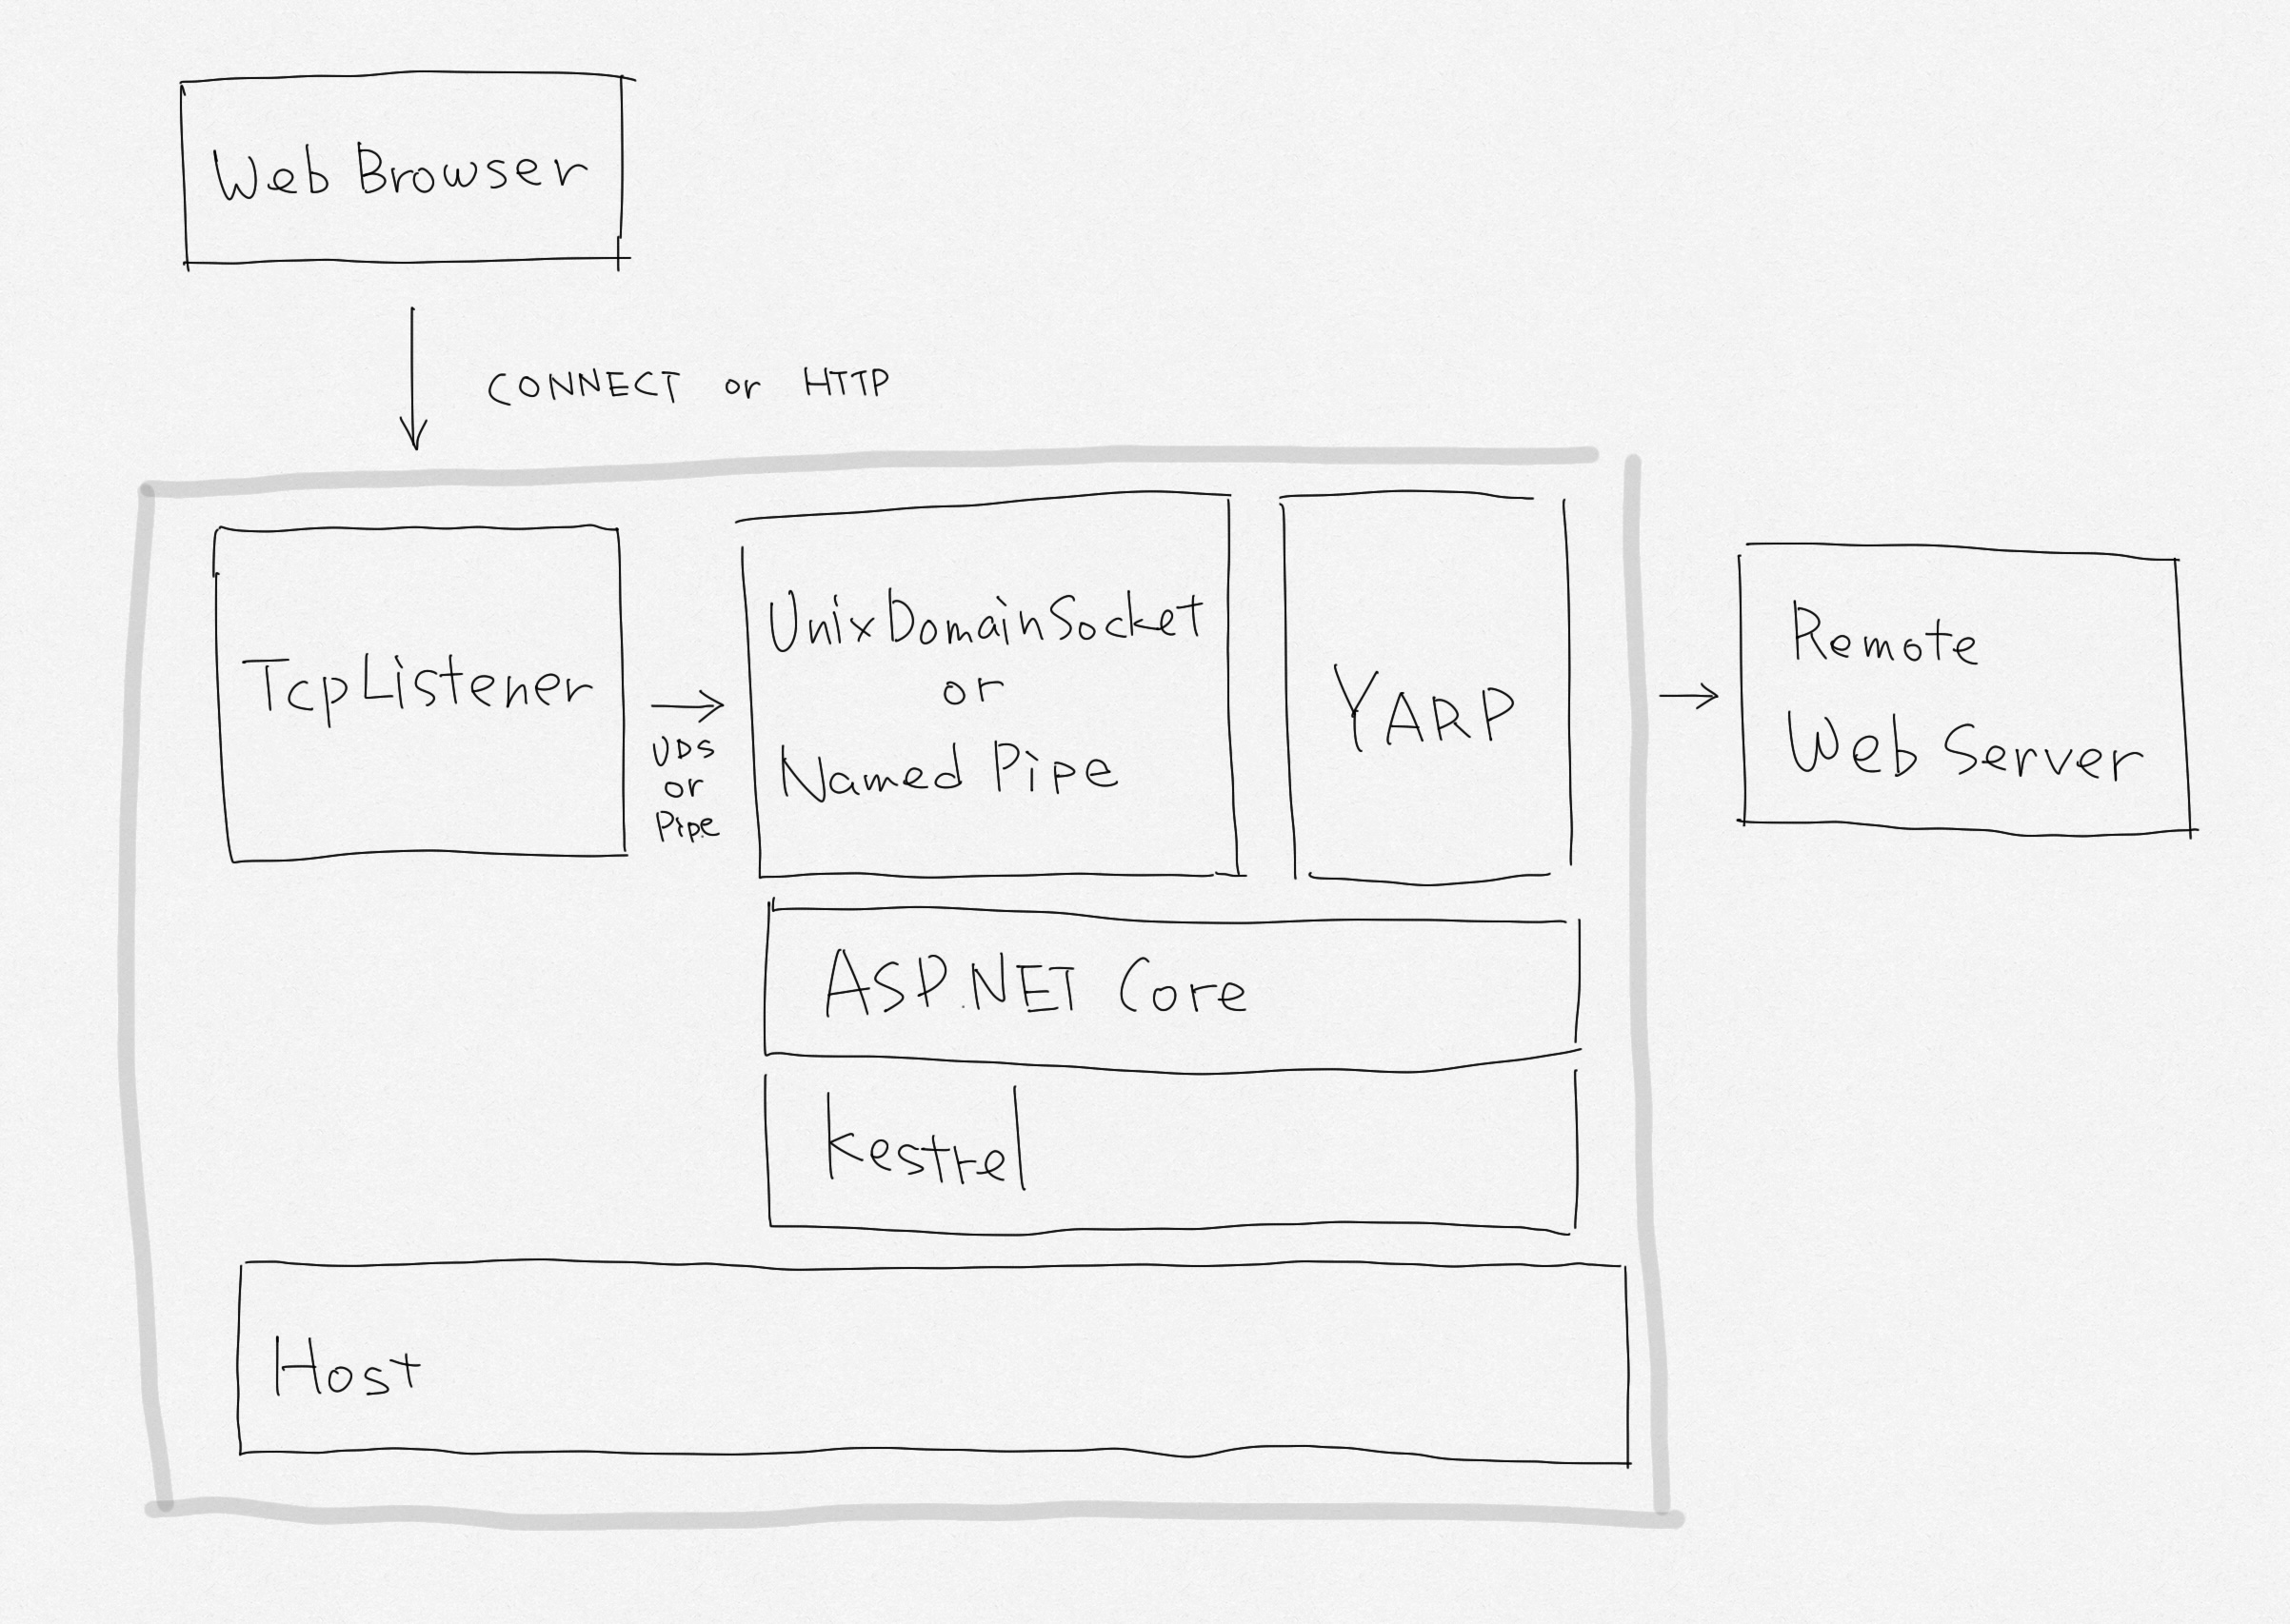 Web Browser
CONNECT or HTTP
TcpListener
UDS
or
Pipe
UnixDomainSocket
or
Named Pipe
YARP
Remote
Web Server
ASP.NET Core
Kestrel
Host